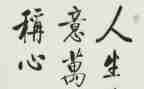 人生
意萬
稱心